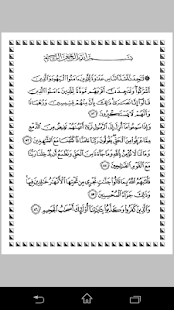 بِسْمِ اللَّهِ الرَّحْمَٰنِ الرَّحِيمِ
۞ لَتَجِدَنَّ أَشَدَّ النَّاسِ عَدَاوَةً لِّلَّذِينَ ءَامَنُوا الْيَهُودَ وَالَّذِينَ
أَشْرَكُوا وَلَتَجِدَنَّ أَقْرَبَهُم مَّوَدَّةً لِّلَّذِينَ ءَامَنُوا الَّذِينَ
قَالُوا إِنَّا نَصَٰرَىٰ ذَٰلِكَ بِأَنَّ مِنْهُمْ قِسِّيسِينَ وَرُهْبَانًا
وَأَنَّهُمْ لَا يَسْتَكْبِرُونَ ٨٢
وَإِذَا سَمِعُوا مَا أُنزِلَ إِلَى الرَّسُولِ تَرَىٰ أَعْيُنَهُمْ تَفِيضُ مِنَ الدَّمْعِ
مِمَّا عَرَفُوا مِنَ الْحَقِّ يَقُولُونَ رَبَّنَا ءَامَنَّا فَاكْتُبْنَا مَعَ الشَّٰهِدِينَ ٨٣
وَمَا لَنَا لَا نُؤْمِنُ بِاللَّهِ وَمَا جَاءَنَا مِنَ الْحَقِّ وَنَطْمَعُ أَن يُدْخِلَنَا
رَبُّنَا مَعَ الْقَوْمِ الصَّٰلِحِينَ ٨٤
فَأَثَٰبَهُمُ اللَّهُ بِمَا قَالُوا جَنَّٰتٍ تَجْرِي مِن تَحْتِهَا الْأَنْهَٰرُ خَٰلِدِينَ فِيهَا
وَذَٰلِكَ جَزَاءُ الْمُحْسِنِينَ ٨٥
وَالَّذِينَ كَفَرُوا وَكَذَّبُوا بِـَٔايَٰتِنَا أُولَٰئِكَ أَصْحَٰبُ الْجَحِيمِ ٨٦